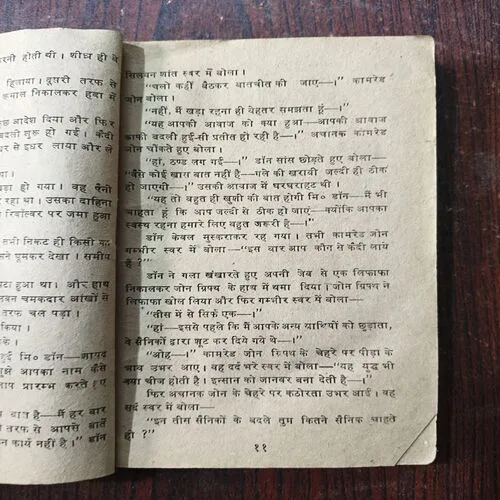 रनी होती थी। शीघ्र ही वे
हिलाया। दूसरी तरफ से
रुमाल निकालकर हवा में
आदेश दिया और फिर
बदली शुरू हो गई। कैदी
से इधर लाया और ले
खड़ा हो गया। वह पैनी
रहा था। उसका दाहिना
रिवॉल्वर पर जमा हुआ
सभी निकट ही किसी
ने घूमकर देखा। समीप
हुआ था। और हाथ
चमकदार आंखों से
तरफ चल पड़ा।
किया।
हुई मि० डॉन—शायद
मुझे आपका नाम कैसे
प्रारम्भ करते हुए
बात है—मैं हर बार
तरफ से आपसे बातें
कार्य नहीं है।" डॉन
सिलयन शांत स्वर में बोला।
"चलो कहीं बैठकर बातचीत की जाए—।" कामरेड
जोन बोला।
"नहीं, मैं खड़ा रहना ही बेहतर समझता हूं—।"
"यह आपकी आवाज को क्या हुआ—आपकी आवाज
काफी बदली हुई-सी प्रतीत हो रही है—।" अचानक कामरेड
जोन चौंकते हुए बोला।
"हां, ठण्ड लग गई—।" डॉन सांस छोड़ते हुए बोला—
"वैसे कोई खास बात नहीं है—गले की खराबी जल्दी ही ठीक
हो जाएगी—।" उसकी आवाज में घरघराहट थी।
"यह तो बहुत ही खुशी की बात होगी मि० डॉन—मैं भी
चाहता हूं कि आप जल्दी से ठीक हो जाएं—क्योंकि आपका
स्वस्थ रहना हमारे लिए बहुत जरूरी है—।"
डॉन केवल मुस्कराकर रह गया। तभी कामरेड जोन
गम्भीर स्वर में बोला—"इस बार आप कौन से कैदी लाये
हैं ?"
डॉन ने गला खंखारते हुए अपनी जेब से एक लिफाफा
निकालकर जोन ग्रिपथ के हाथ में थमा दिया। जोन ग्रिपथ ने
लिफाफा खोल लिया और फिर गम्भीर स्वर में बोला—
"तीस में से सिर्फ एक—।"
"हां—इससे पहले कि मैं आपके अन्य साथियों को छुड़ाता,
वे सैनिकों द्वारा शूट कर दिये गये थे—।"
"ओह—।" कामरेड जोन ग्रिपथ के चेहरे पर पीड़ा के
भाव उभर आए। वह दर्द भरे स्वर में बोला—"यह युद्ध भी
क्या चीज होती है। इन्सान को जानवर बना देती है—।"
फिर अचानक जोन के चेहरे पर कठोरता उभर आई। वह
सर्द स्वर में बोला—
"इन तीस सैनिकों के बदले तुम कितने सैनिक चाहते
हो ?"
११